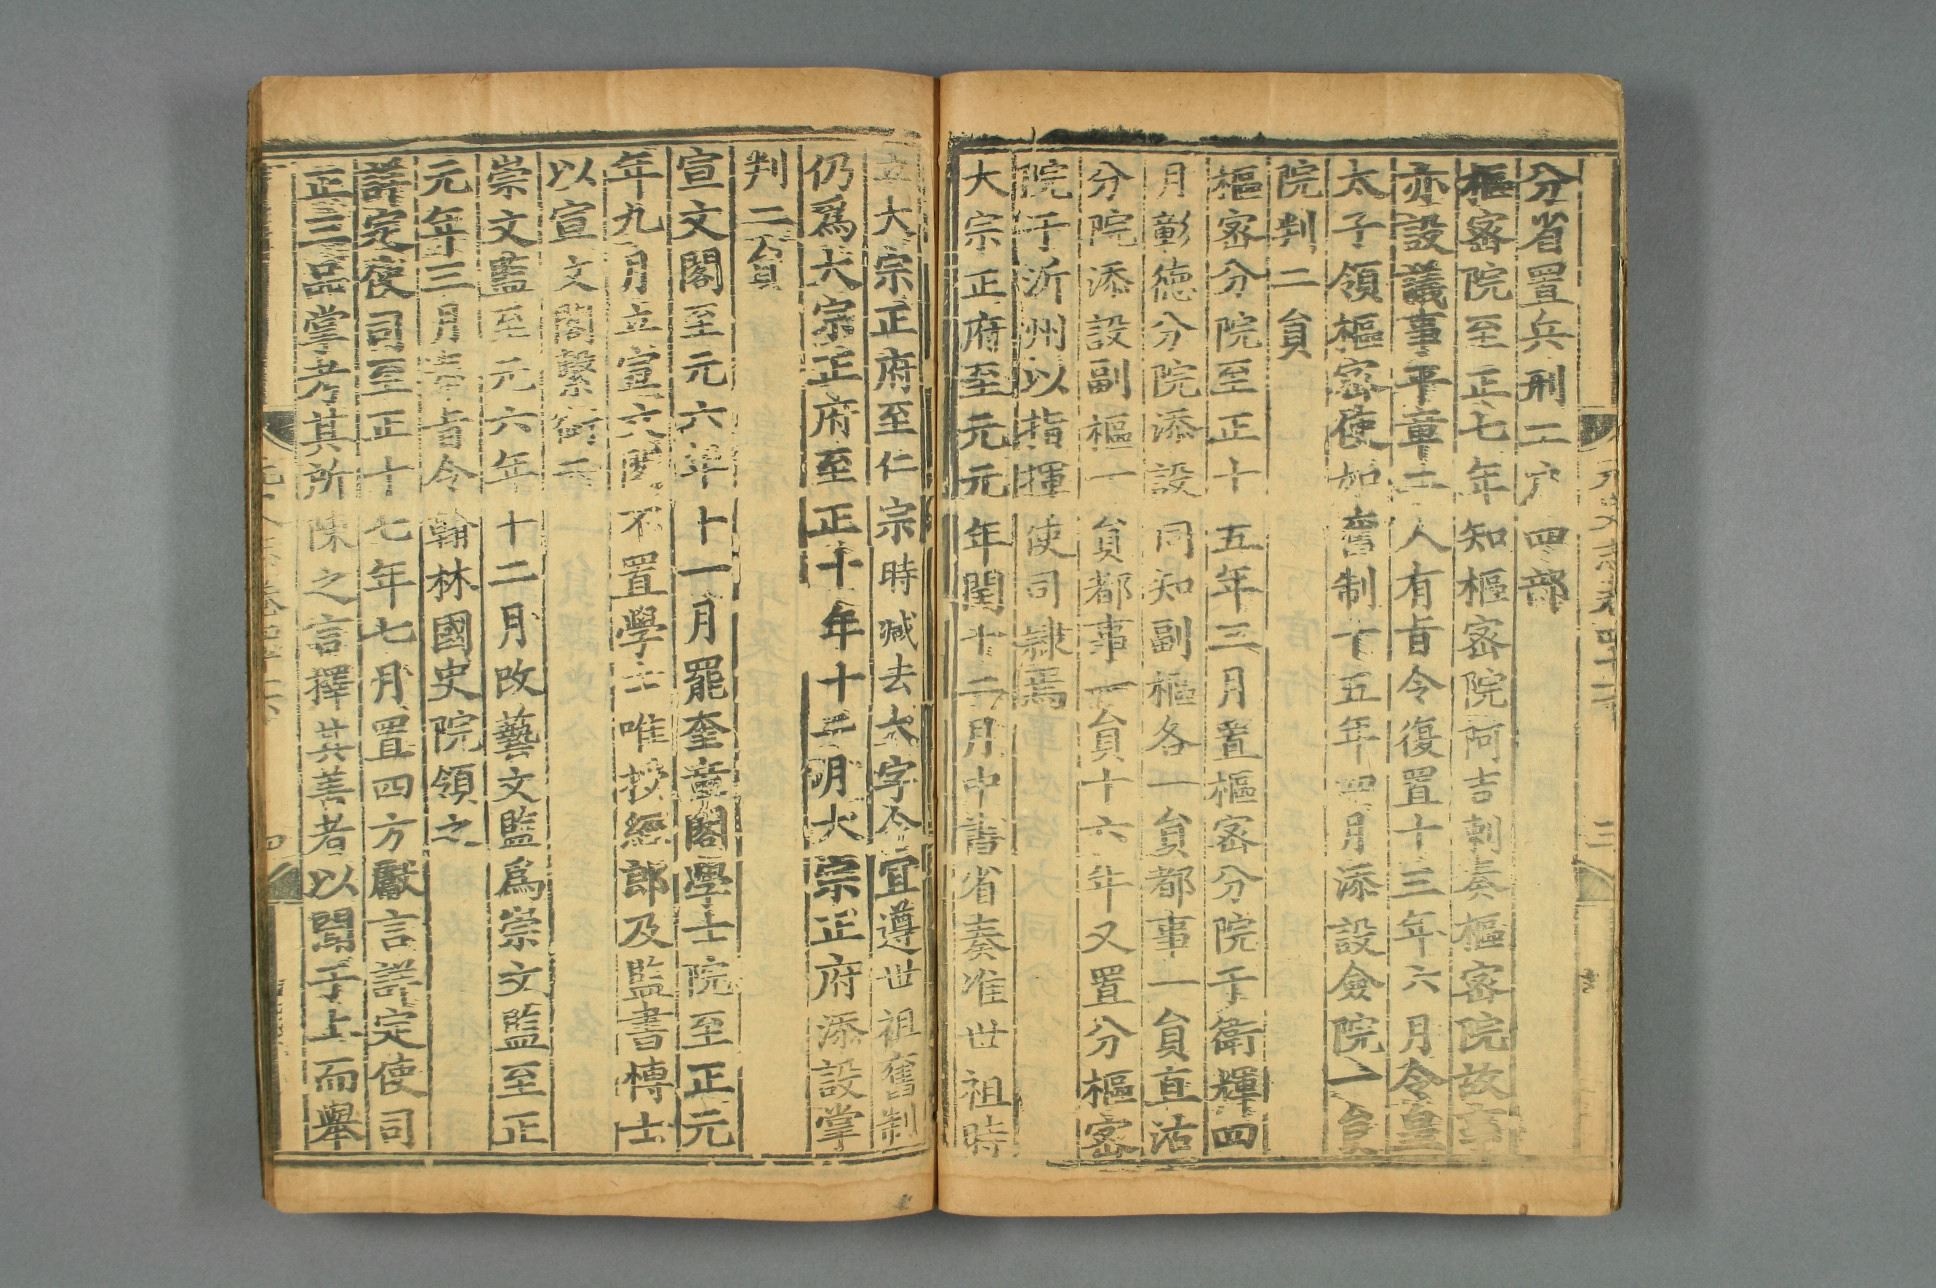 分省置兵刑工户四部
樞密院至正七年知樞密院阿吉剌奏樞密院故事
亦設議事平章二人有旨令復置十三年六月令皇
太子領樞密使如舊制十五年四月添設僉院一員
院判二員
樞密分院至正十五年三月置樞密分院于衛輝四
月彰德分院添設同知副樞各一員都事一員直沽
分院添設副樞一員都事一員十六年又置分樞密
院于沂州以指揮使司隸焉
大宗正府至元元年閏十二月中書省奏准世祖時
立大宗正府至仁宗時减去大字今宜遵世祖舊制
仍爲大宗正府至正十年十二月大宗正府添設掌
判二員
宣文閣至元六年十一月罷奎章閣學士院至正元
年九月立宣文閣不置學士唯授經郎及監書博士
以宣文閣繫銜云
崇文監至元六年十二月改藝文監爲崇文監至正
元年三月奉旨令翰林國史院領之
詳定使司至正十七年七月置四方獻言詳定使司
正三品掌考其所陳之言擇其善者以聞于上而舉